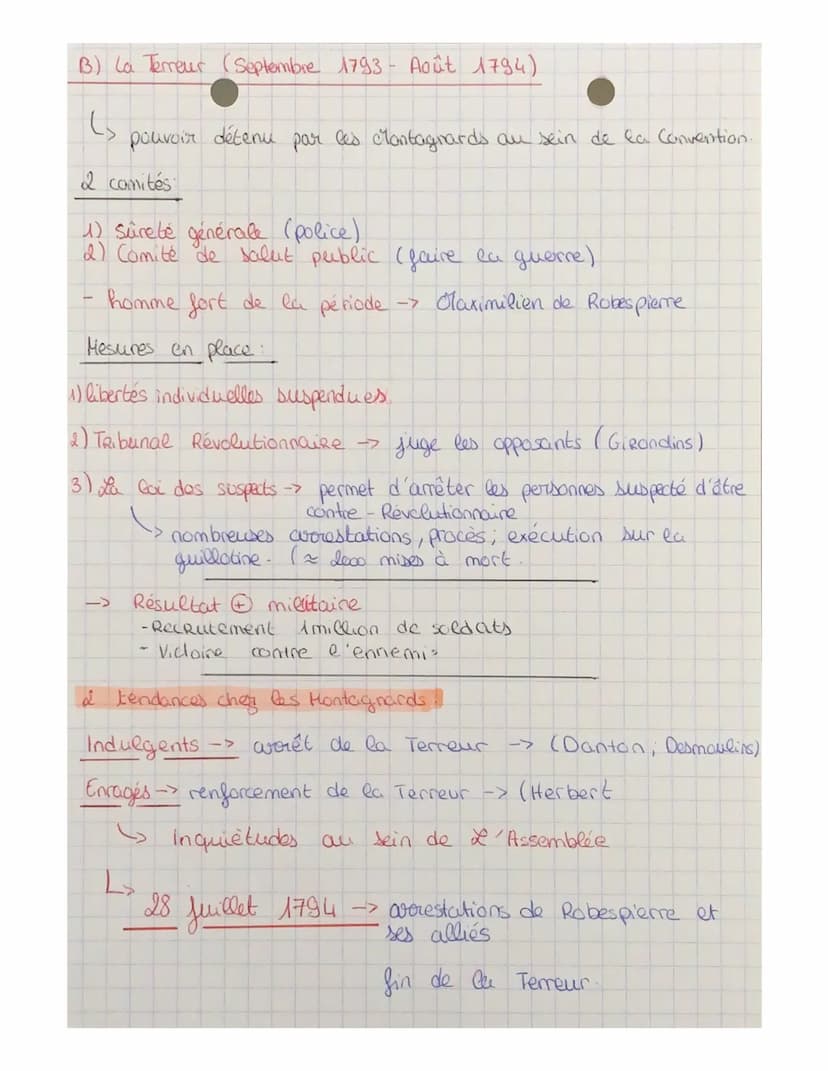 B) La Terreur (Septembre 1793 - Août 1794)
↳ pouvoir détenu par les Montagnards au sein de la Convention.
2 comités:
1) Sûreté générale (police)
2) Comité de salut public (faire la guerre)
- homme fort de la période -> Maximilien de Robespierre
Mesures en place :
1) libertés individuelles suspendues.
2) Tribunal Révolutionnaire -> juge les opposants (Girondins)
3) La Loi des suspects -> permet d'arrêter les personnes suspecté d'être
contre-Révolutionnaire
↳ nombreuses arrestations, procès; exécution sur la
guillotine. (≈ 2000 mises à mort.
-> Résultat ⊕ militaire
- Recrutement 1 million de soldats
- Victoire contre l'ennemis
2 tendances chez les Montagnards :
Indulgents -> arrêt de la Terreur -> (Danton; Desmoulins)
Enragés -> renforcement de la Terreur -> (Herbert
↳ Inquiétudes au sein de l'Assemblée
↳ 28 juillet 1794 -> arrestations de Robespierre et
ses alliés
fin de la Terreur.